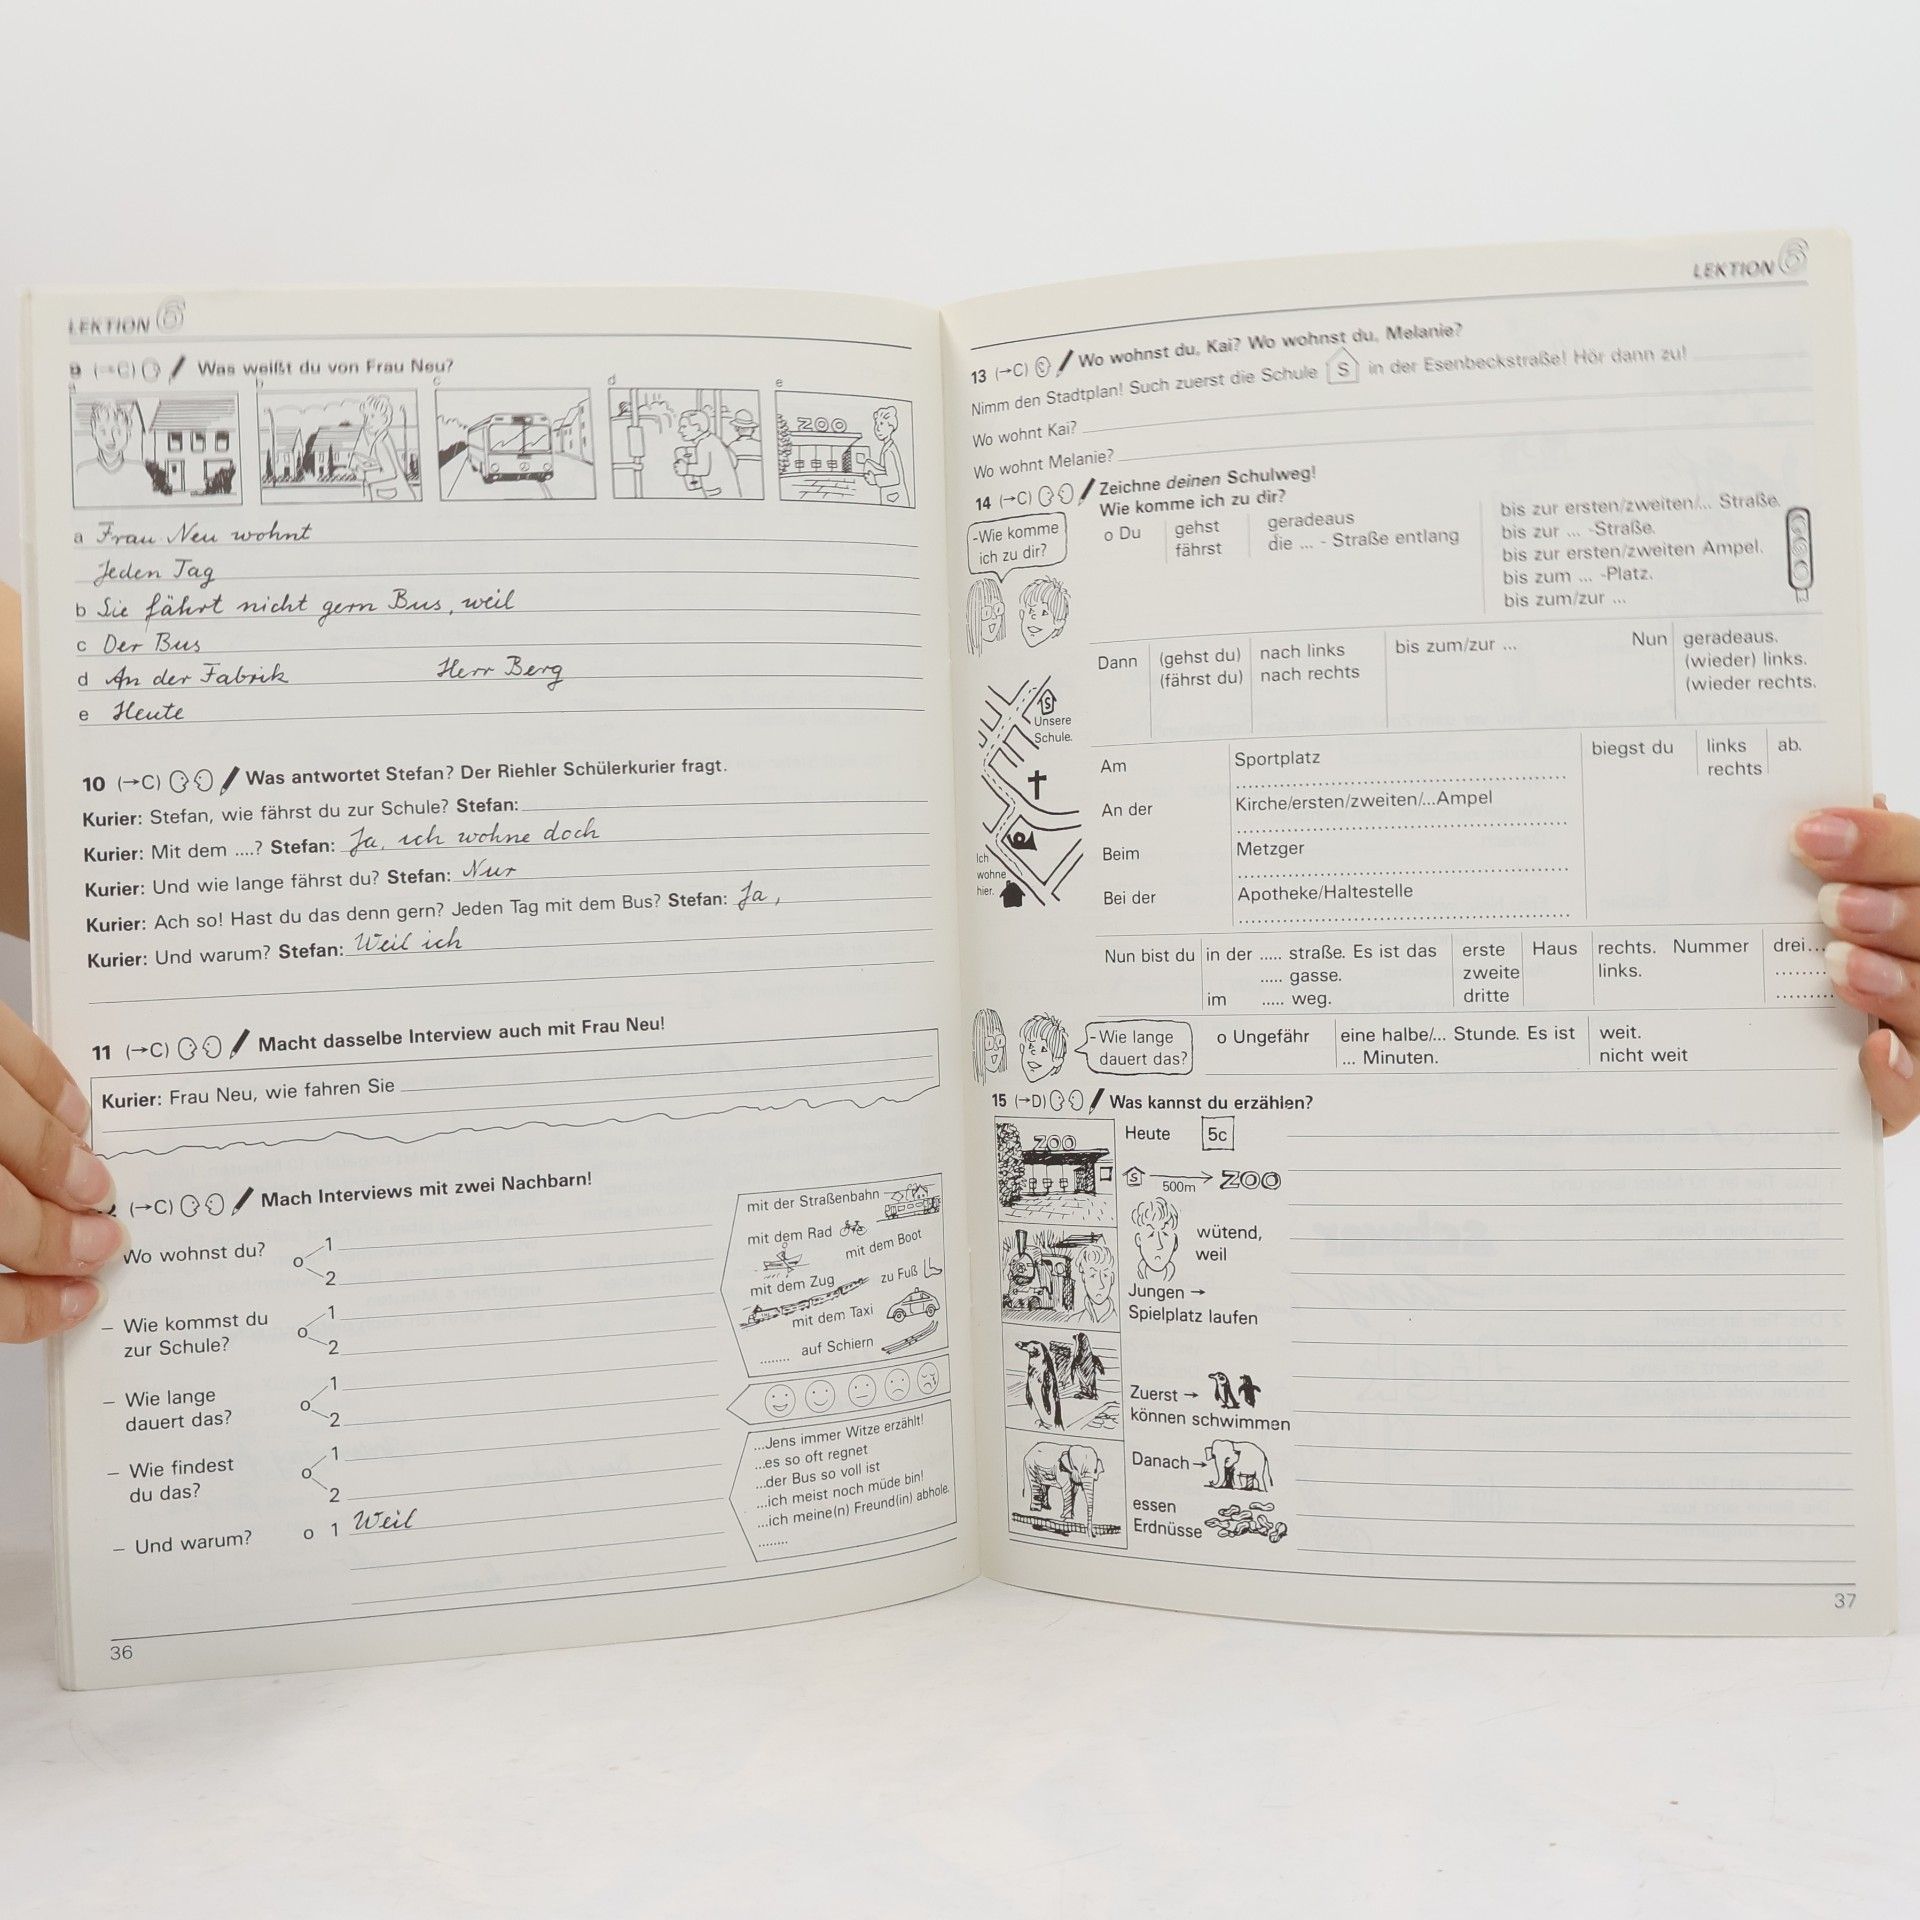 LEKTION 6
9 (→C) Was weißt du von Frau Neu?
a
b
c
d
e
ZOO
a Frau Neu wohnt
Jeden Tag
b Sie fährt nicht gern Bus, weil
c Der Bus
d An der Fabrik Herr Berg
e Heute
10 (→C) Was antwortet Stefan? Der Riehler Schülerkurier fragt.
Kurier: Stefan, wie fährst du zur Schule? Stefan:
Kurier: Mit dem ....? Stefan: Ja, ich wohne doch
Kurier: Und wie lange fährst du? Stefan: Nur
Kurier: Ach so! Hast du das denn gern? Jeden Tag mit dem Bus? Stefan: Ja,
Kurier: Und warum? Stefan: Weil ich
11 (→C) Macht dasselbe Interview auch mit Frau Neu!
Kurier: Frau Neu, wie fahren Sie
(→C) Mach Interviews mit zwei Nachbarn!
Wo wohnst du? o 1
2
– Wie kommst du
zur Schule? o 1
2
– Wie lange
dauert das? o 1
2
– Wie findest
du das? o 1
2
– Und warum? o 1 Weil
mit der Straßenbahn
mit dem Rad
mit dem Boot
mit dem Zug
zu Fuß
mit dem Taxi
........ auf Schiern
...Jens immer Witze erzählt!
...es so oft regnet
...der Bus so voll ist
...ich meist noch müde bin!
...ich meine(n) Freund(in) abhole.
........
36
LEKTION 6
13 (→C) Wo wohnst du, Kai? Wo wohnst du, Melanie?
Nimm den Stadtplan! Such zuerst die Schule S in der Esenbeckstraße! Hör dann zu!
Wo wohnt Kai?
Wo wohnt Melanie?
14 (→C) Zeichne deinen Schulweg!
Wie komme ich zu dir?
-Wie komme
ich zu dir?
o Du gehst geradeaus
fährst die ... - Straße entlang
bis zur ersten/zweiten/... Straße.
bis zur ... -Straße.
bis zur ersten/zweiten Ampel.
bis zum ... -Platz.
bis zum/zur ...
Dann (gehst du) nach links bis zum/zur ... Nun geradeaus.
(fährst du) nach rechts (wieder) links.
(wieder rechts.
S
Unsere
Schule.
Ich
wohne
hier.
Am Sportplatz biegst du links ab.
rechts
An der Kirche/ersten/zweiten/...Ampel
Beim Metzger
Bei der Apotheke/Haltestelle
Nun bist du in der ..... straße. Es ist das erste Haus rechts. Nummer drei...
..... gasse. zweite links. ........
im ..... weg. dritte ........
-Wie lange
dauert das?
o Ungefähr eine halbe/... Stunde. Es ist weit.
... Minuten. nicht weit
15 (→D) Was kannst du erzählen?
ZOO
Heute 5c
S 500m ZOO
wütend,
weil
Jungen →
Spielplatz laufen
Zuerst →
können schwimmen
Danach→
essen
Erdnüsse
37